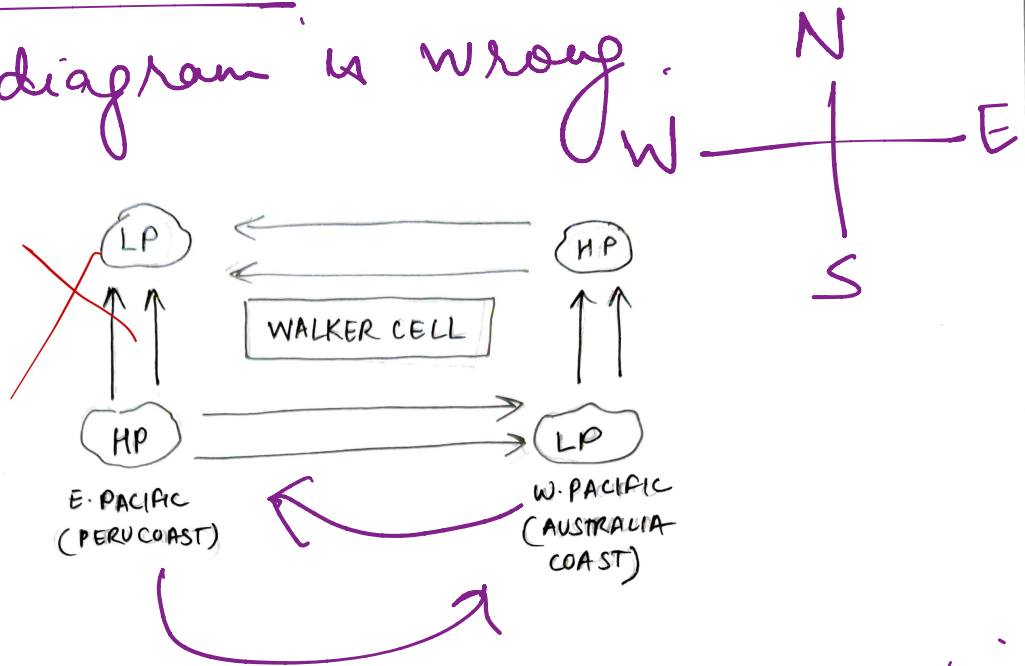 diagram is wrong.
N
W E
S
LP HP
WALKER CELL
HP LP
E. PACIFIC
(PERU COAST)
W. PACIFIC
(AUSTRALIA
COAST)